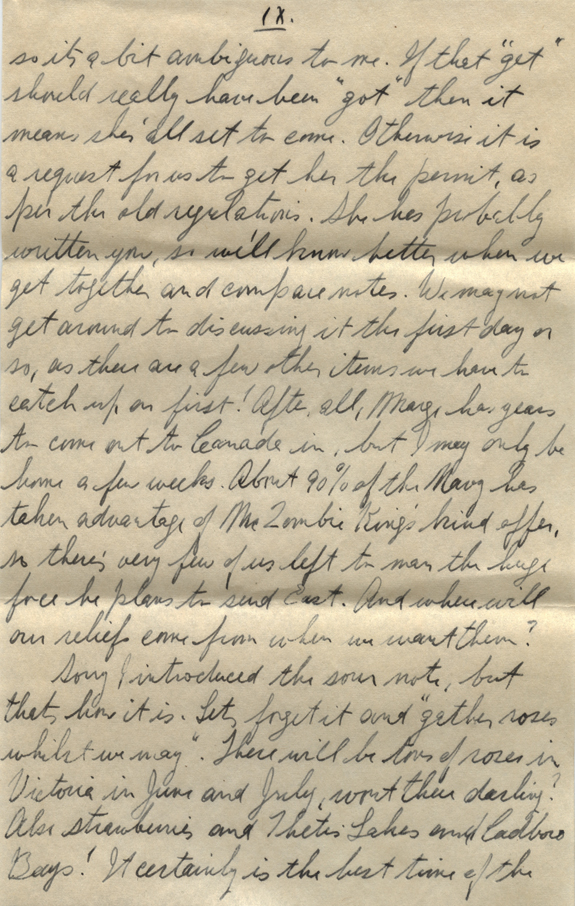 IX.
so its a bit ambiguous to me. If that "get"
should really have been "got" then it
means she's all set to come. Otherwise it is
a request for us to get her the permit, as
per the old regulations. She has probably
written you, so we'll know better when we
get together and compare notes. We may not
get around to discussing it the first day or
so, as there are a few other items we have to
catch up on first! After all, Marge has years
to come out to Canada in, but I may only be
home a few weeks. About 90% of the Navy has
taken advantage of Mr Zombie King's kind offer,
so there's very few of us left to man the huge
force he plans to send East. And where will
our reliefs come from when we want them?
Sorry I introduced the sour note, but
thats how it is. Lets forget it and "gather roses
whilst we may". There will be tons of roses in
Victoria in June and July, wont there darling?
Also strawberries and Thetis Lakes and Cadboro
Bays! It certainly is the best time of the